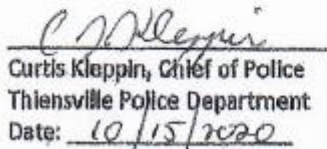 C J Kleppin
Curtis Kleppin, Chief of Police
Thiensville Police Department
Date: 10/15/2020